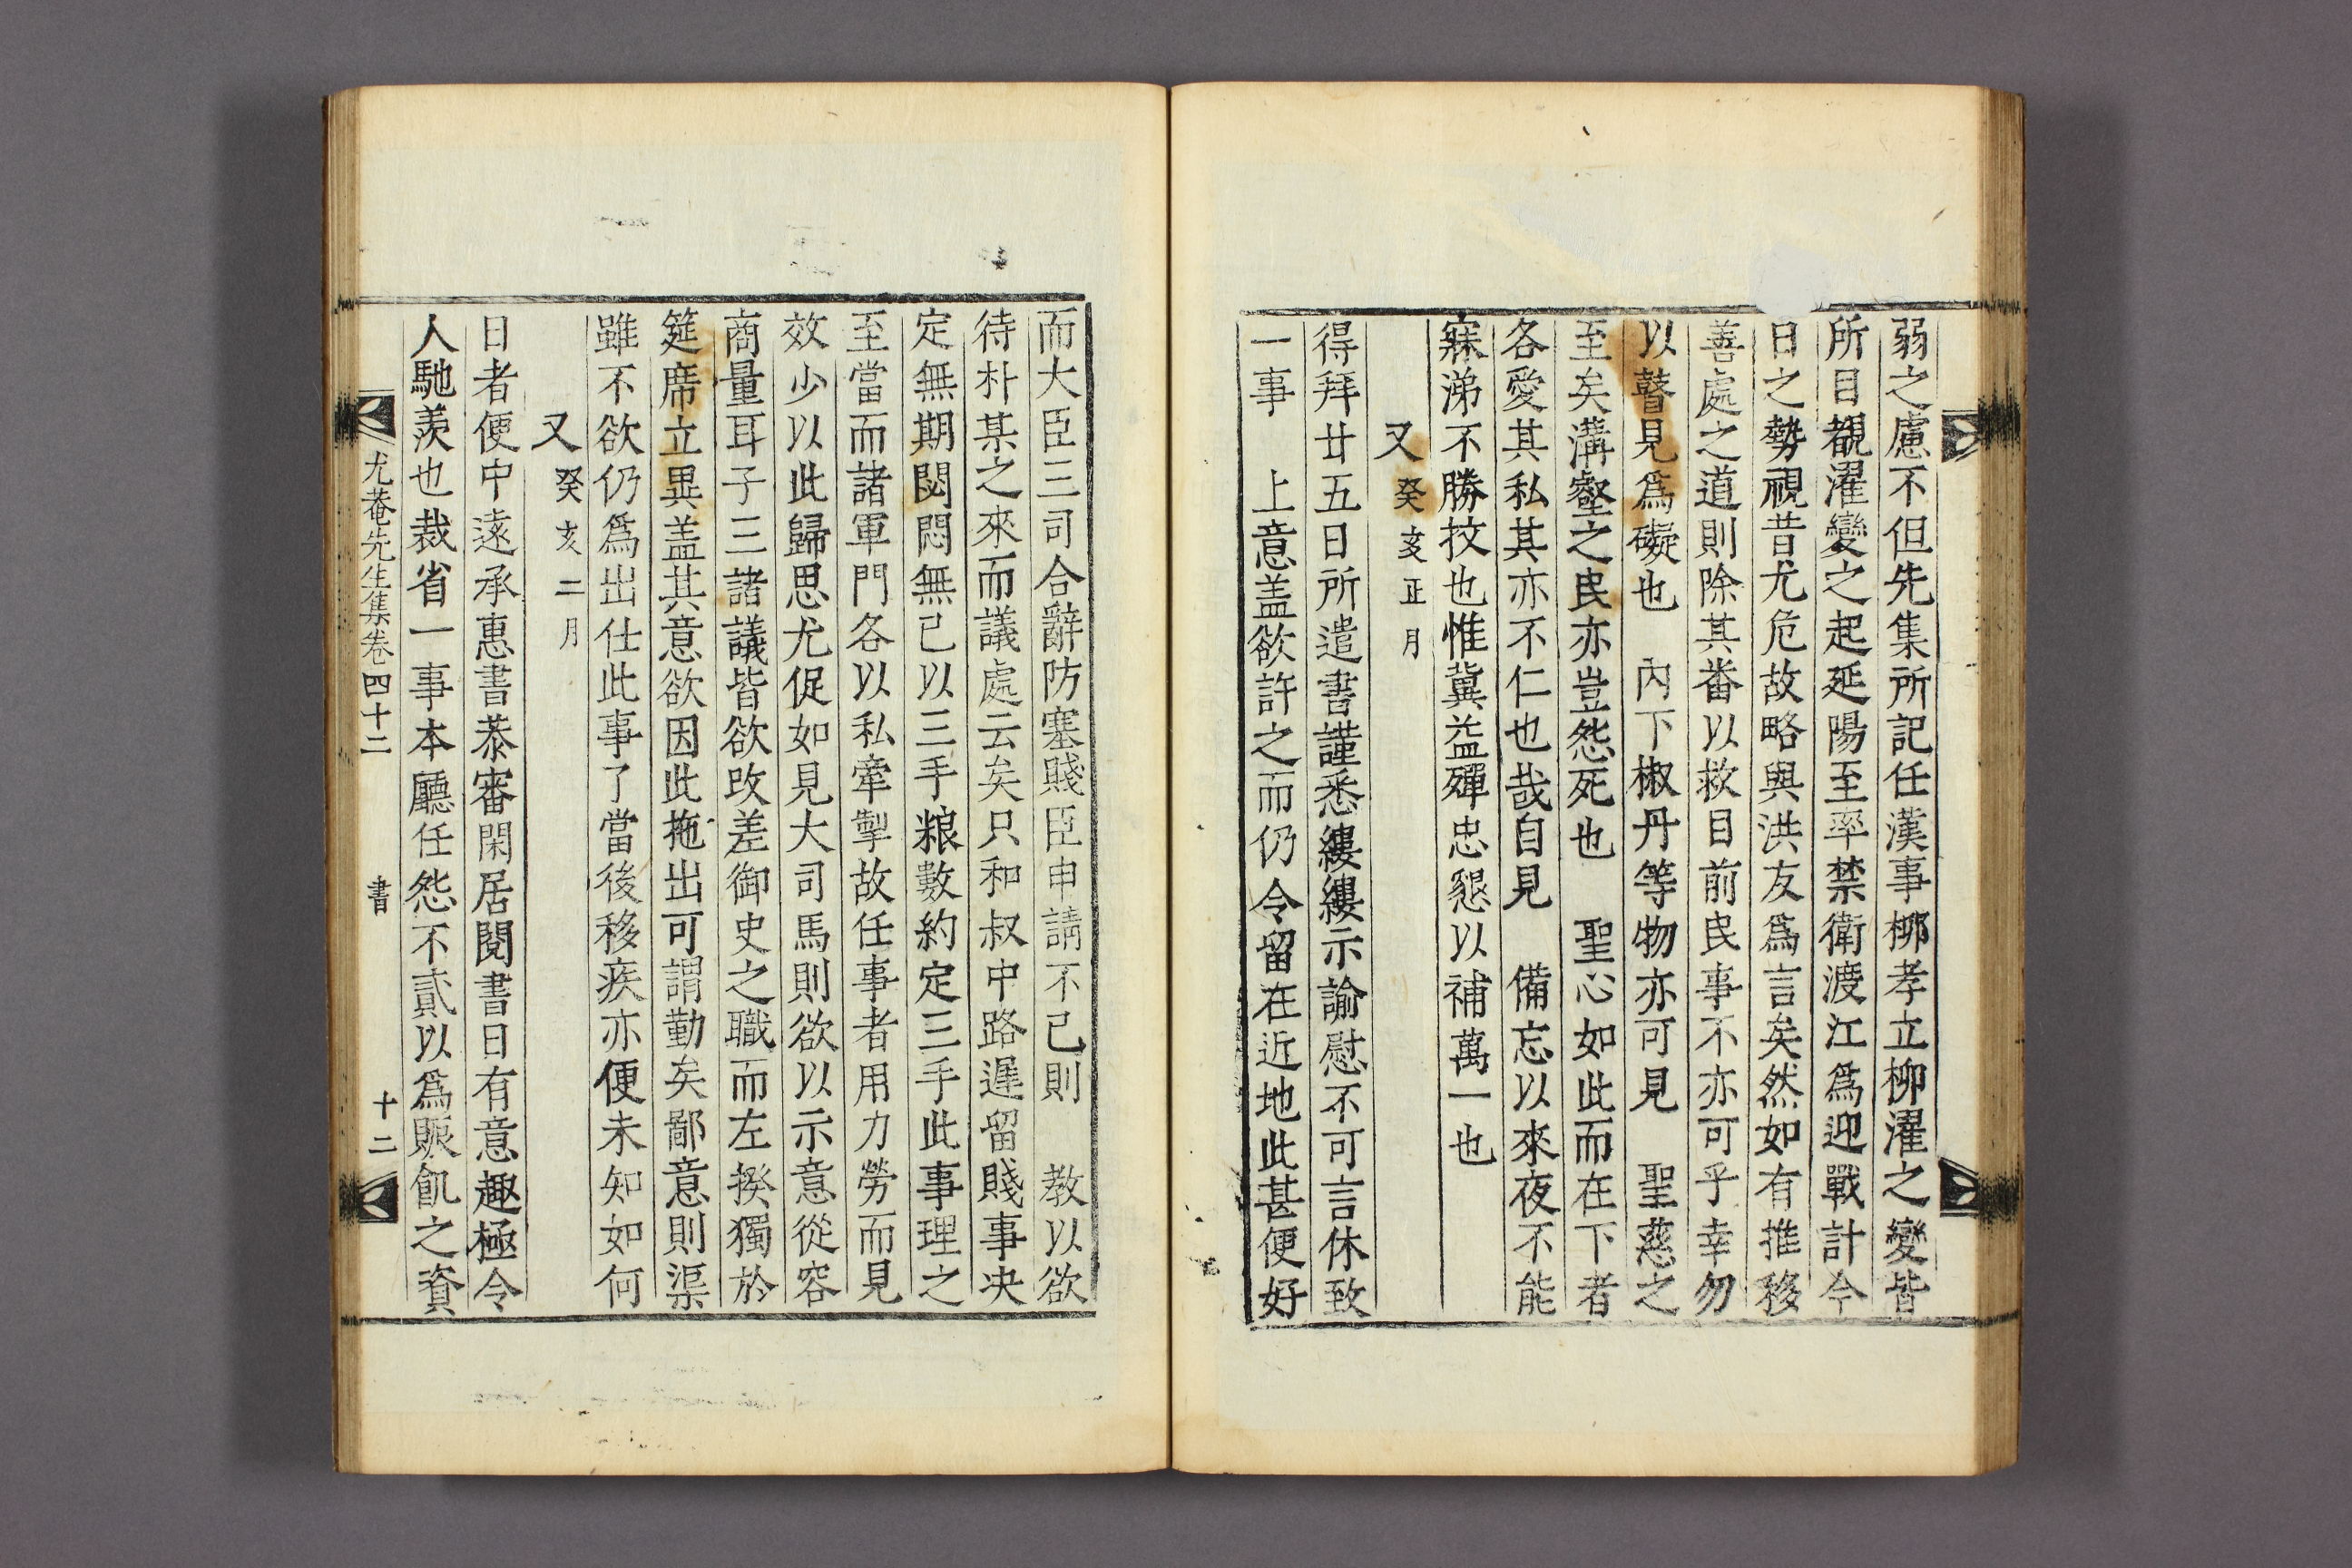 弱之慮不但先集所記任漢事栁孝立柳濯之變皆
所目覩濯變之起延陽至率禁衛渡江爲迎戰計今
日之勢視昔尤危故略與洪友爲言矣然如有推移
善處之道則除其番以救目前民事不亦可乎幸勿
以瞽見爲礙也 內下椒丹等物亦可見 聖慈之
至矣溝壑之民亦豈怨死也 聖心如此而在下者
各愛其私其亦不仁也哉自見 備忘以來夜不能
寐涕不勝抆也惟冀益殫忠懇以補萬一也
又癸亥正月
得拜廿五日所遣書謹悉縷縷示諭慰不可言休致
一事 上意盖欲許之而仍令留在近地此甚便好
而大臣三司合辭防塞賤臣申請不已則 教以欲
待朴某之來而議處云矣只和叔中路遲留賤事决
定無期悶悶無已以三手粮數約定三手此事理之
至當而諸軍門各以私牽掣故任事者用力勞而見
效少以此歸思尤促如見大司馬則欲以示意從容
商量耳子三諸議皆欲改差御史之職而左揆獨於
筵席立異盖其意欲因此拖出可謂勤矣鄙意則渠
雖不欲仍爲出仕此事了當後移疾亦便未知如何
又癸亥二月
日者便中遠承惠書恭審閑居閱書日有意趣極令
人馳羨也裁省一事本廳任怨不貳以爲賑飢之資
尤菴先生集卷四十二 書 十二